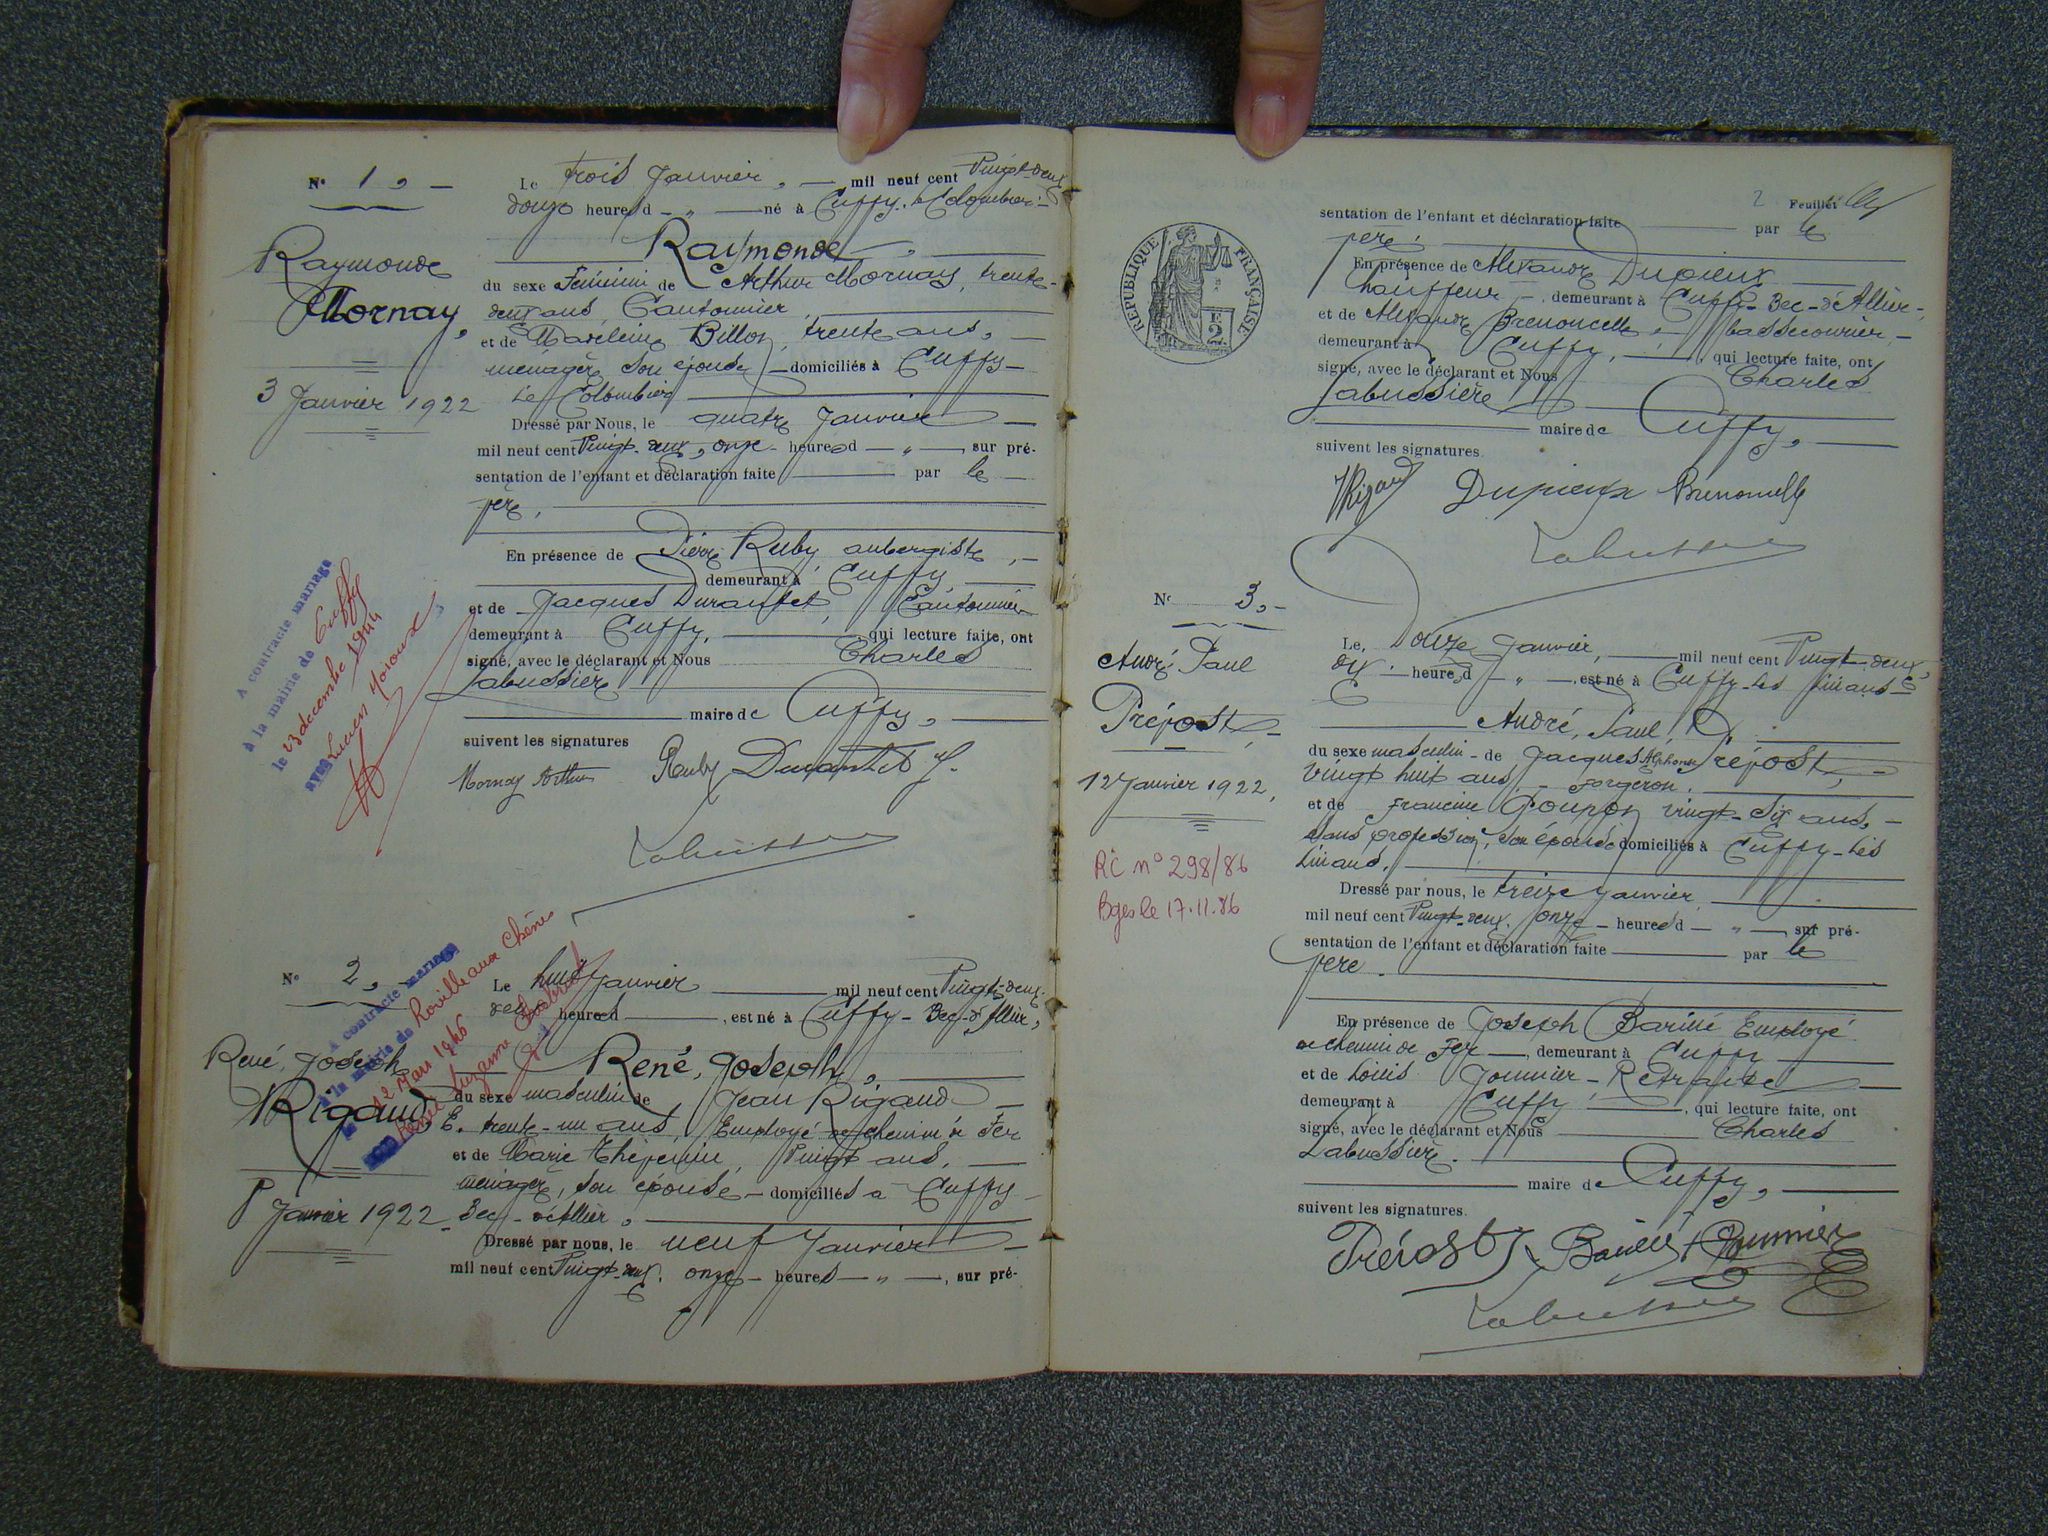 N° 1, —
Raymonde
Mornay,
3 Janvier 1922
Le trois Janvier, — mil neuf cent Vingt-deux
douze heures d — " — né à Cuffy, le Colombier
Raymonde,
du sexe Féminin de Arthur Mornay, trente-
deux ans, Cantonnier,
et de Madeleine Billon, trente ans, —
ménagère son épouse, — domiciliés à Cuffy —
Le Colombier
Dressé par Nous, le quatre Janvier —
mil neuf cent Vingt-deux, onze heures d — " — sur pré-
sentation de l'enfant et déclaration faite — par le —
père,
En présence de Pierre Ruby, aubergiste, —
demeurant à Cuffy,
et de Jacques Durantet, Cantonnier
demeurant à Cuffy, — qui lecture faite, ont
signé, avec le déclarant et Nous Charles
Labussière
maire de Cuffy, —
suivent les signatures
Mornay Arthur Ruby Durantet J.
Labussière
A contracté mariage
à la mairie de Cuffy
le 23 décembre 1944
avec Lucien
N° 2, —
René, Joseph
Rigaud
8 Janvier 1922
A contracté mariage
à la mairie de aux Chênes
12 Mars 1946
Suzanne
Le huit Janvier — mil neuf cent Vingt-deux
heures d — , est né à Cuffy - Bec-d'Allier,
René, Joseph,
du sexe masculin de Jean Rigaud —
E. trente-un ans, Employé de chemin de Fer
et de Marie Thévenin, Vingt ans, —
ménagère, son épouse — domiciliés à Cuffy —
Bec-d'Allier,
Dressé par nous, le neuf Janvier —
mil neuf cent Vingt-deux, onze — heures — " —, sur pré-
2 Feuillet
RÉPUBLIQUE FRANÇAISE
sentation de l'enfant et déclaration faite — par le
père.
En présence de Alexandre Dupieux
Chauffeur —, demeurant à Cuffy - Bec-d'Allier,
et de Alexandre Brenoncelle, bassecourier —
demeurant à Cuffy, — qui lecture faite, ont
signé, avec le déclarant et Nous Charles
Labussière
maire de Cuffy, —
suivent les signatures.
Rigaud Dupieux Brenoncelle
Labussière
N° 3, —
André Paul
Prépost,
12 Janvier 1922,
RC n° 298/86
Bges le 17.11.86
Le, Douze Janvier, — mil neuf cent Vingt-deux,
dix — heures d — " —, est né à Cuffy - les
André, Paul,
du sexe masculin — de Jacques Alphonse Prépost, —
Vingt huit ans, — forgeron,
et de Francine Goupon vingt-six ans, —
sans profession, son épouse domiciliés à Cuffy - les
Dressé par nous, le treize Janvier,
mil neuf cent Vingt-deux, onze — heures d — " —, sur pré-
sentation de l'enfant et déclaration faite — par le
père.
En présence de Joseph Employé
de chemin de Fer —, demeurant à Cuffy
et de Louis — Retraité —
demeurant à Cuffy —, qui lecture faite, ont
signé, avec le déclarant et Nous — Charles
Labussière.
maire de Cuffy, —
suivent les signatures.
Prépost J
Labussière